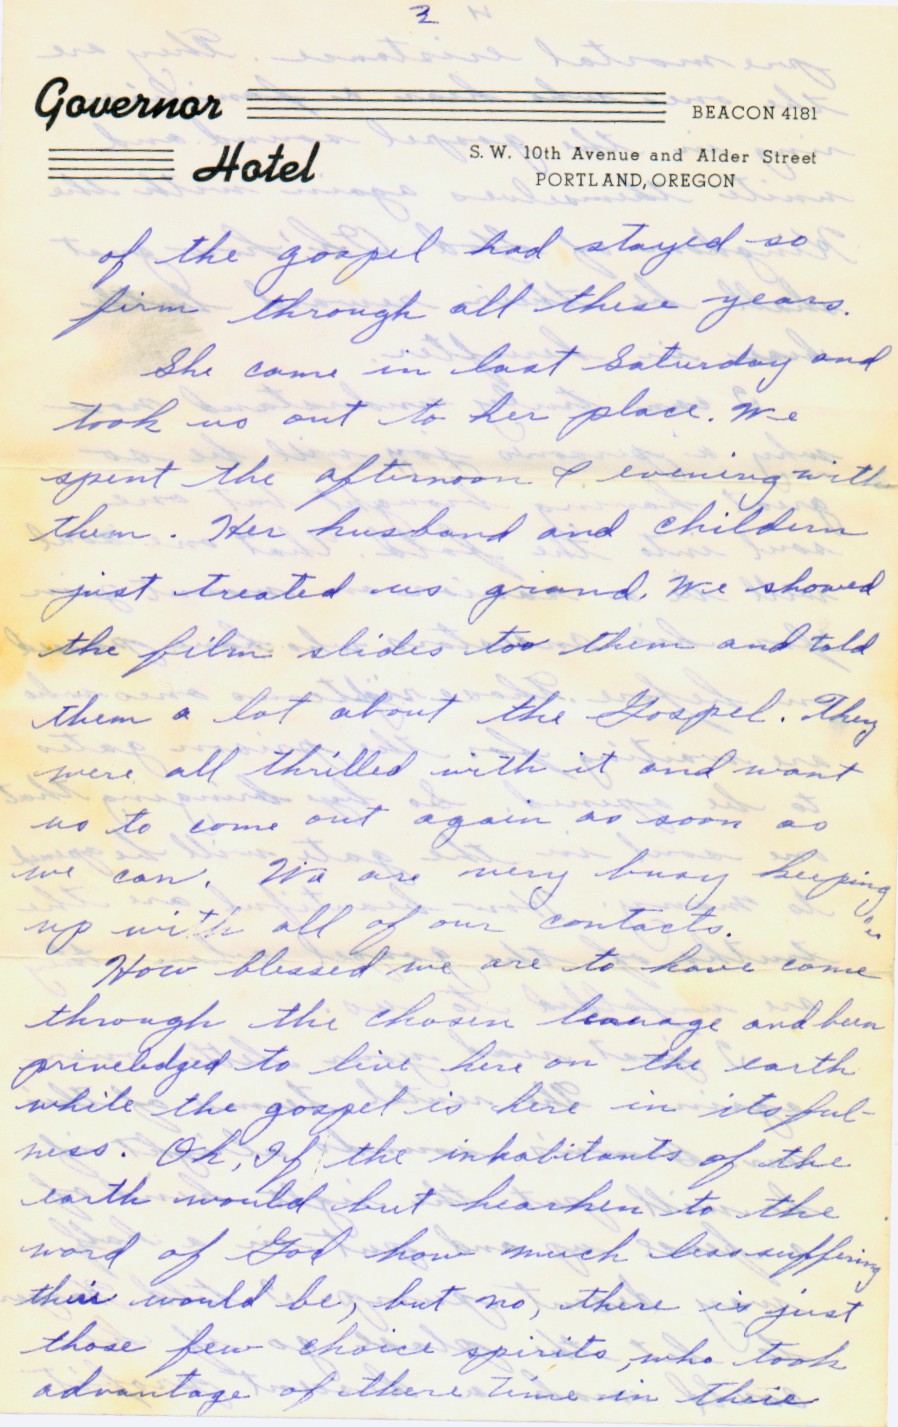 3
Governor
Hotel
BEACON 4181
S. W. 10th Avenue and Alder Street
PORTLAND, OREGON
of the gospel had stayed so
firm through all these years.
She came in last Saturday and
took us out to her place. We
spent the afternoon & evening with
them. Her husband and childern
just treated us grand. We showed
the film slides too them and told
them a lot about the Gospel. They
were all thrilled with it and want
us to come out again as soon as
we can. We are very busy keeping
up with all of our contacts.
How blessed we are to have come
through the chosen and been
priveledged to live here on the earth
while the gospel is here in its ful-
ness. Oh, If the inhabitants of the
earth would but hearken to the
word of God how much less suffering
their would be, but no, there is just
those few choice spirits, who took
advantage of there time in their